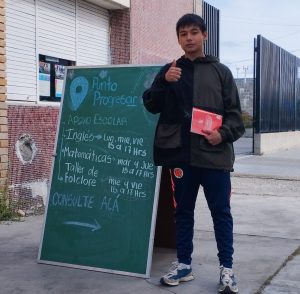 Punto
Progresar
APOYO ESCOLAR
Inglés → lun, mie, vie
15 a 17 Hrs
Matemáticas → mar y jue
15 a 17 Hrs
Taller de
Folclore → mie y vie
15 a 17 Hrs
CONSULTE ACÁ
→